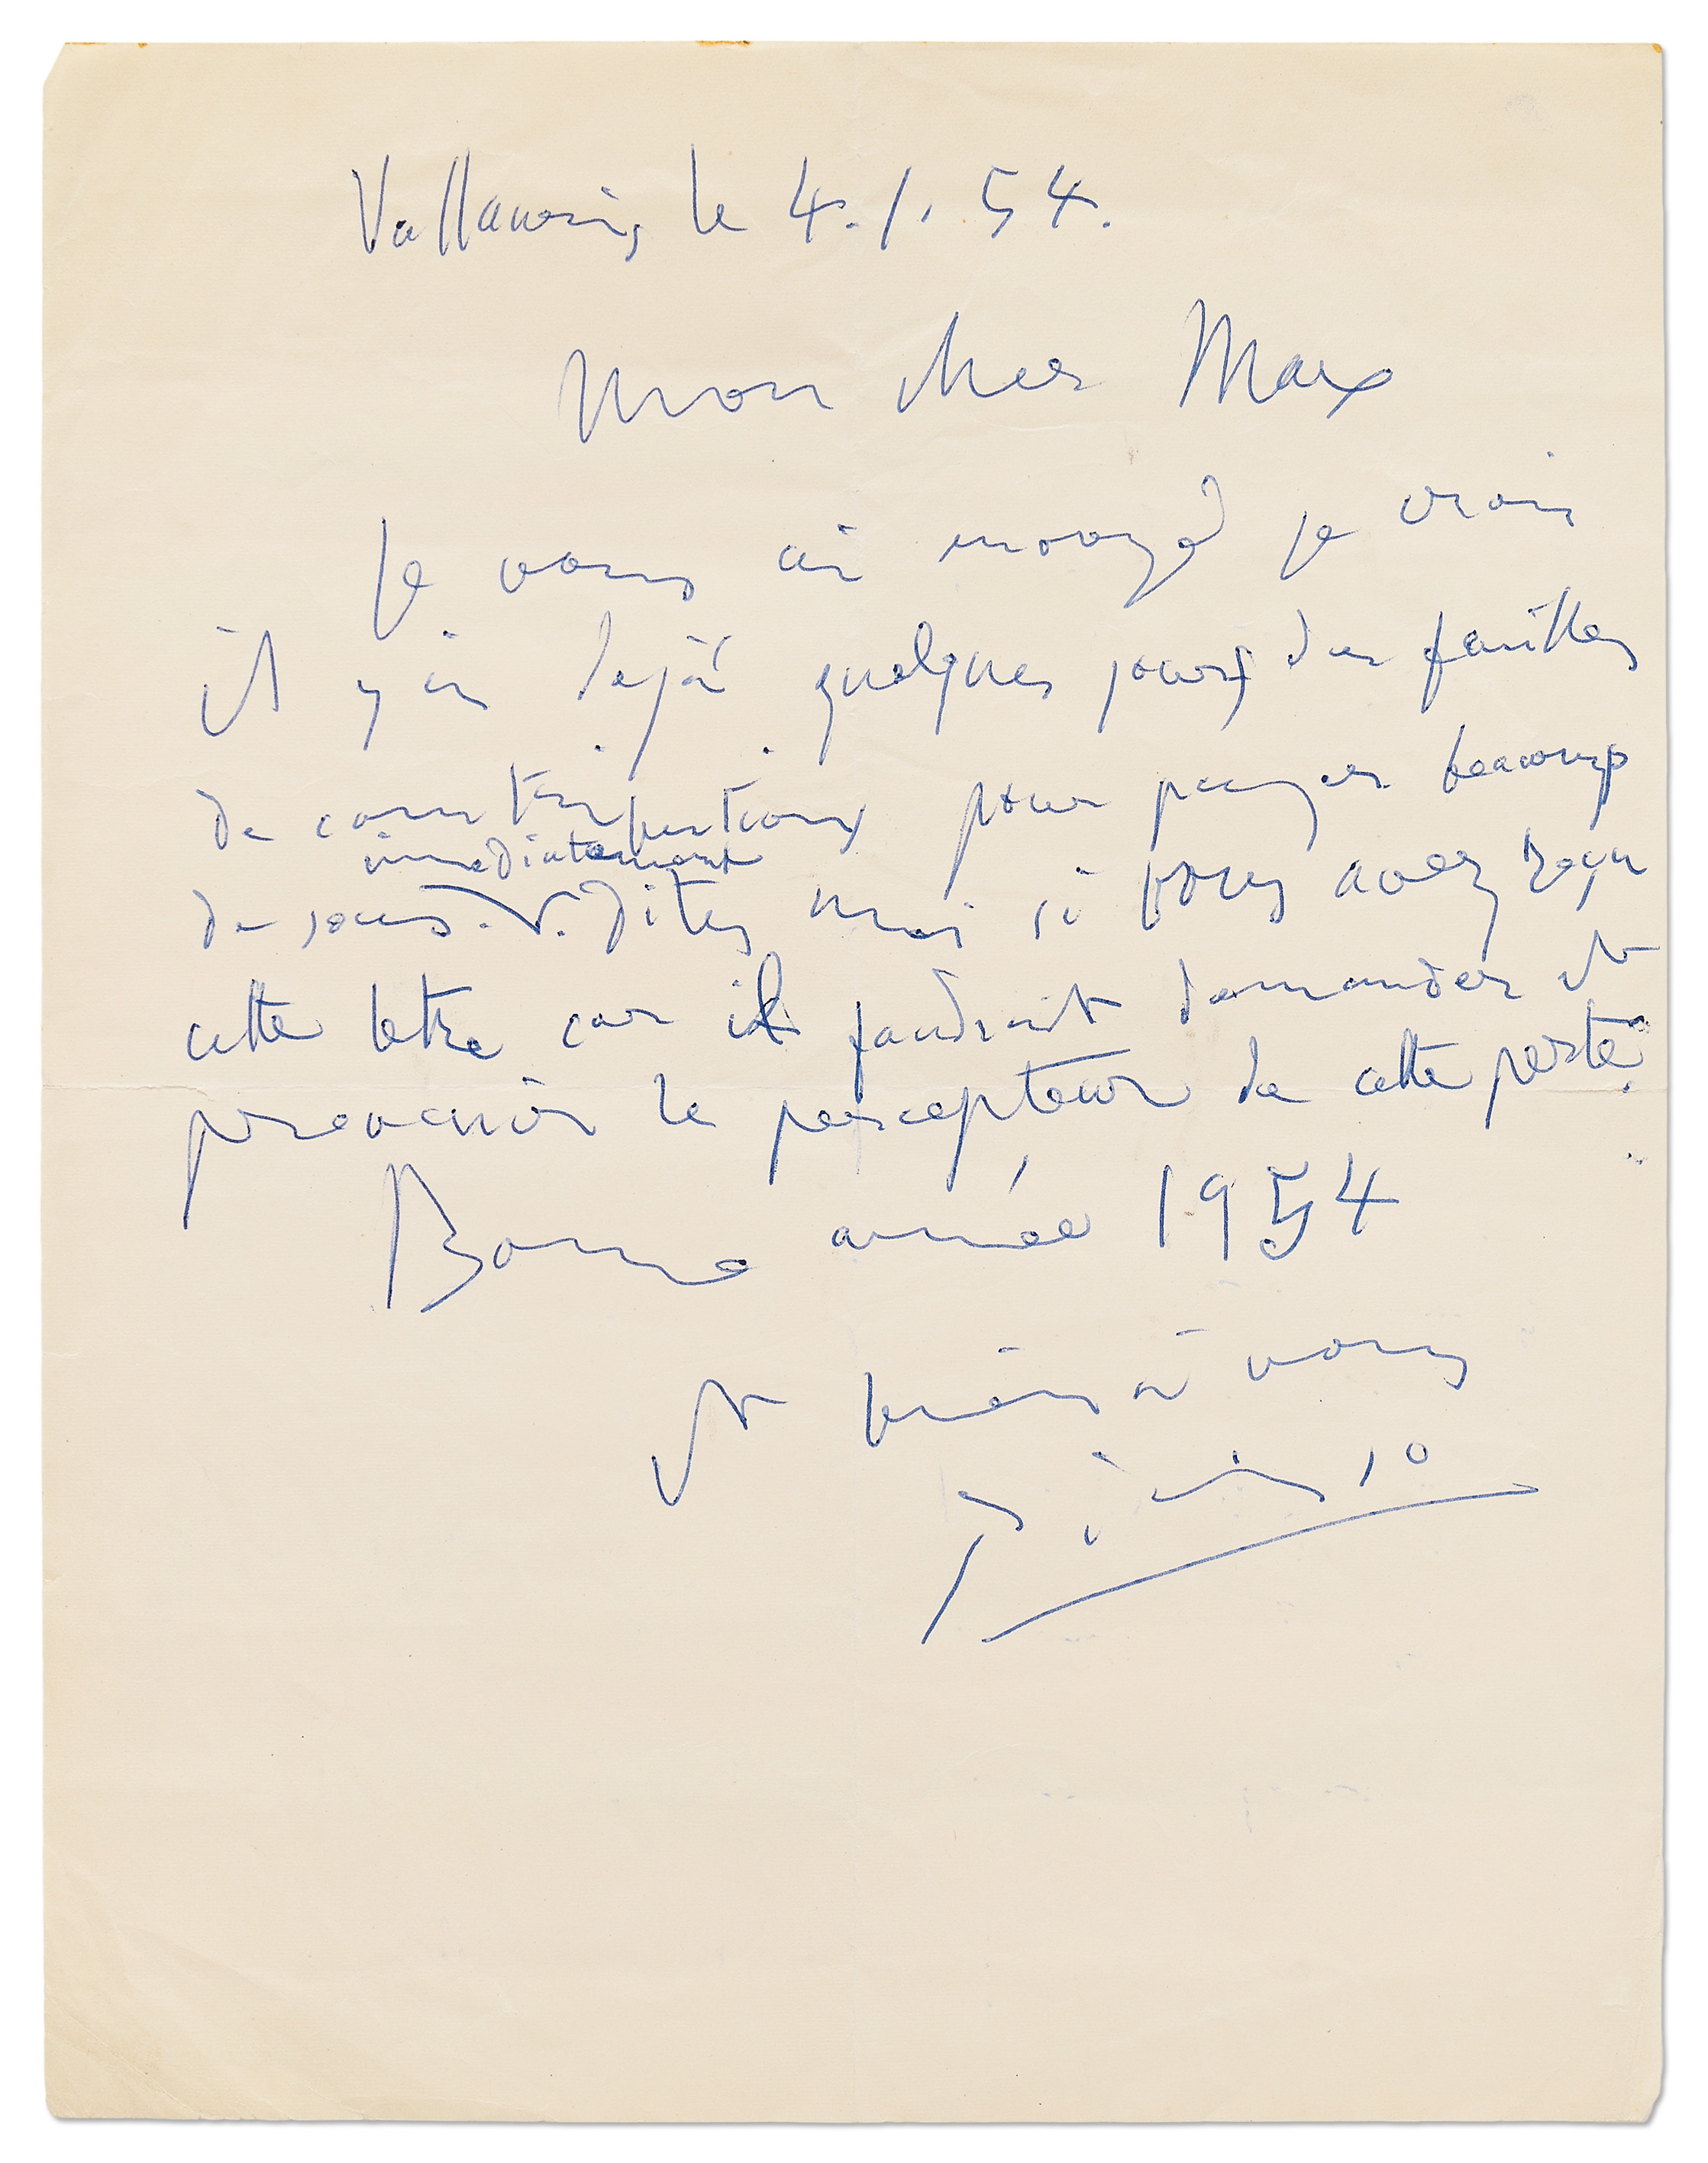 Vallauris le 4.1.54.
Mon cher Max
Je vous ai envoyé je crois
il y a dejà quelques jours des feuilles
de contributions pour payer beaucoup
immediatement
de sous. V. Dites moi si vous avez reçu
cette letre car il faudrait demander et
prevenir le percepteur de cette perte.
Bonne année 1954
et bien à vous
Picasso